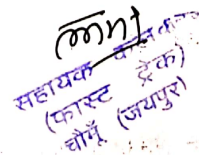 सहायक
(फास्ट ट्रेक)
चौमूँ (जयपुर)